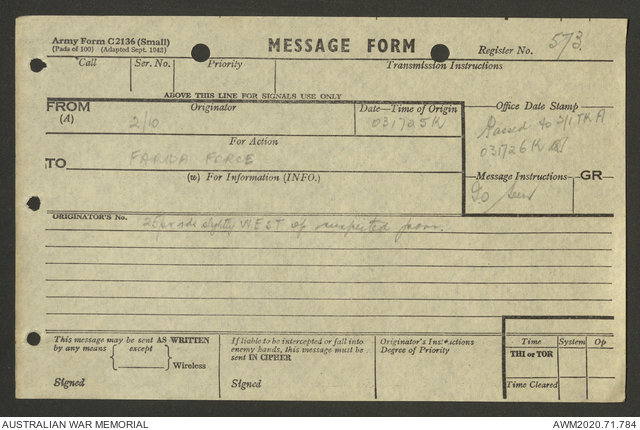 Army Form C2136 (Small)
(Pads of 100) (Adapted Sept. 1942)
MESSAGE FORM
Register No. 573
Call Ser. No. Priority Transmission Instructions
ABOVE THIS LINE FOR SIGNALS USE ONLY
FROM Originator Date—Time of Origin Office Date Stamp
(A) 2/10 031725K
Passed to 2/1 TK A
031726K
For Action
TO FARIDA FORCE
(w) For Information (INFO.)
Message Instructions GR
To
ORIGINATOR'S No.
slightly WEST of suspected posn.
This message may be sent AS WRITTEN
by any means except
Wireless
Signed
If liable to be intercepted or fall into
enemy hands, this message must be
sent IN CIPHER
Signed
Originator's Instructions
Degree of Priority
Time System Op
THI or TOR
Time Cleared
AUSTRALIAN WAR MEMORIAL AWM2020.71.784